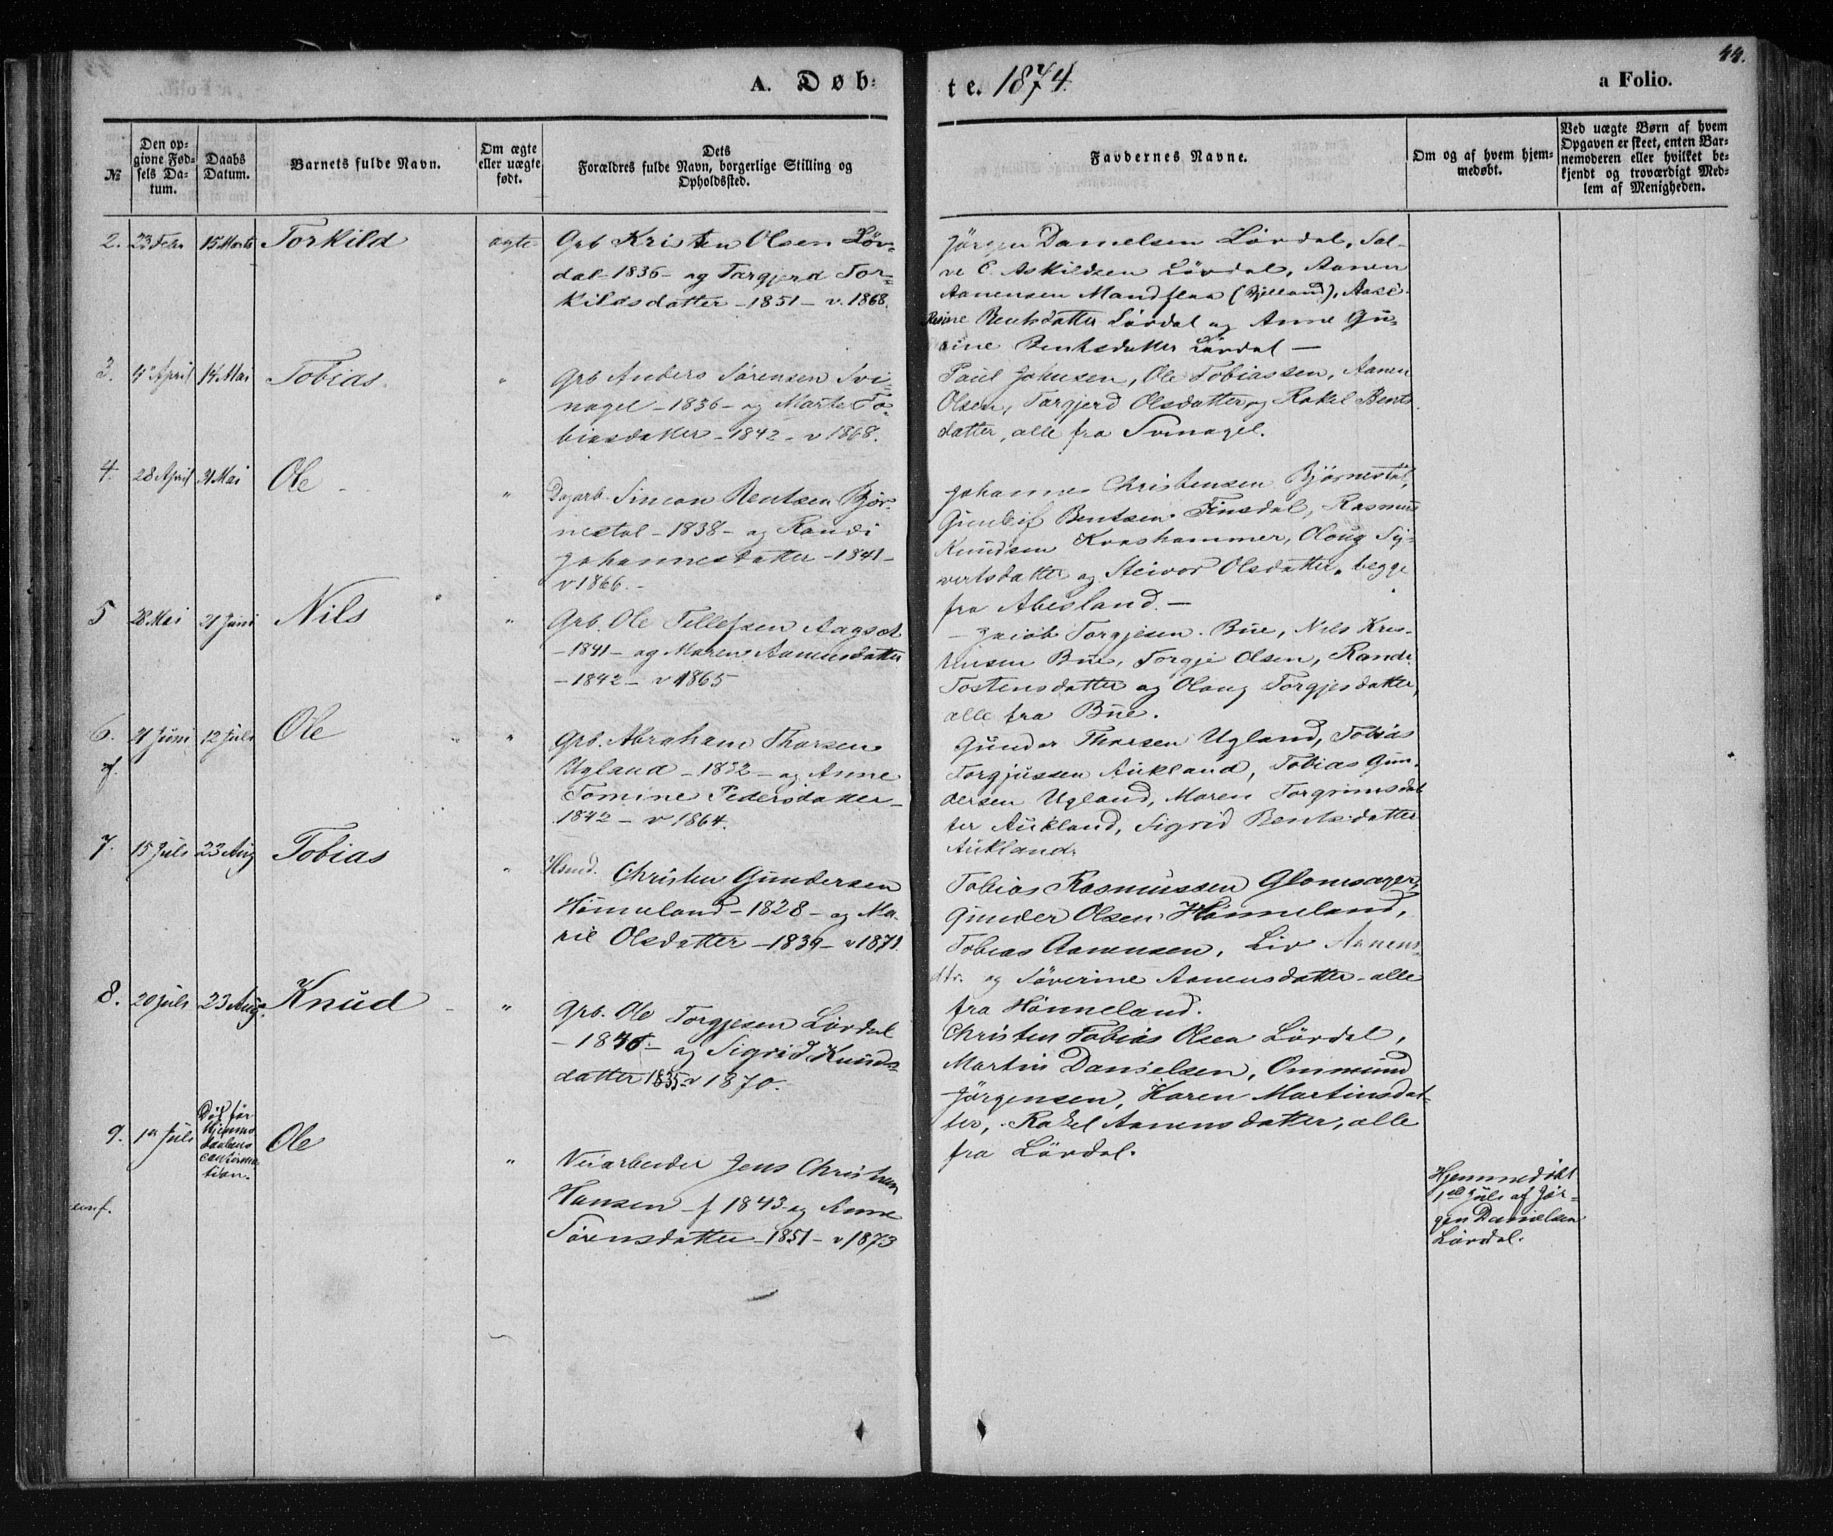 44.
A. Døb-
te. 1874.
a Folio.
№
Den op-
givne Fød-
sels Da-
tum.
Daabs
Datum.
Barnets fulde Navn.
Om ægte
eller uægte
født.
Dets
Forældres fulde Navn, borgerlige Stilling og
Opholdssted.
Faddernes Navne.
Om og af hvem hjem-
medøbt.
Ved uægte Børn af hvem
Opgaven er skeet, enten Bar-
nemoderen eller hvilket be-
kjendt og troværdigt Med-
lem af Menigheden.
2. 23 Febr 15 Marts Torkild ægte
Grb Kristen Olsen Løv-
dal - 1836 - og Targjerd Tor-
kildsdatter - 1851 - v. 1868.
Jørgen Danielsen Lövdal, Sal-
ve E. Askildsen Lövdal, Aanen
Aanensen Mandflaa (Bjelland),
Bentsdatter Lövdal og Anne Gu-
rine Bentsdatter Lövdal —
3. April 14 Mai Tobias "
Grb Anders Sørensen Svi-
nagel - 1836 - og Marte To-
biasdatter - 1842 - v 1868.
Paul Johnsen, Ole Tobiassen, Aanen
Olsen, Targjerd Olsdatter og Rakel Bents
datter, alle fra Svinagel.
4. 28 April 31 Mai Ole "
Dagarb. Simon Bentsen Bjør-
nestal - 1838 - og Randi
Johannesdatter - 1841 -
v 1866. -
Johannes Christensen Bjørnestal,
Gunleif Bentsen Finsdal, Rasmus
Knudsen Kvashammer, Oloug Sy-
vertsdatter og Steivor Olsdatter, begge
fra Abesland. —
5 28 Mai 21 Juni Nils "
Grb. Ole Tellefsen Aagset
- 1841 - og Maren Aanensdatter
- 1842 - v 1865
- Jacob Torgjesen Bue, Nils Kris-
tensen Bue, Torgje Olsen, Randi
Tostensdatter og Oloug Torgjesdatter,
alle fra Bue.
6. 21 Juni 12 Juli Ole "
Grb. Abraham Thorsen
Ugland - 1832 - og Anne
Tomine Pedersdatter -
1842 - v 1864.
Gunder Thorsen Ugland, Tobias
Torgjussen Aukland, Tobias Gun-
dersen Ugland, Maren Torgrimsdat
ter Aukland, Sigrid Bentsdatter
Aukland.
7. 15 Juli 23 Aug Tobias "
Hsmd. Christen Gundersen
Hønneland - 1828 - og Ma-
rie Olsdatter - 1839 - v 1871.
Tobias Rasmussen Glomsager,
Gunder Olsen Hønneland,
Tobias Aanensen, Liv Aanens-
dtr. og Söverine Aanensdatter - alle
fra Hønneland.
8. 20 Juli 23 Aug. Knud "
Grb. Ole Torgjesen Lövdal
- og Sigrid Knuds-
datter 1835 v 1870.
Christen Tobias Olsen Lövdal,
Martin Danielsen, Ommund
Jörgensen, Karen Martinsdat-
ter, Rakel Aanensdatter, alle
fra Lövdal.
9. 1ste Juli Död før
Hjemme
daabens
confirma
tion. Ole "
Veiarbeider Jens Christian
Hansen - f 1843 og Anne
Sörensdatter - 1851 - v 1873
Hjemmedöbt
1ste Juli af Jör-
gen Danielsen
Lövdal.